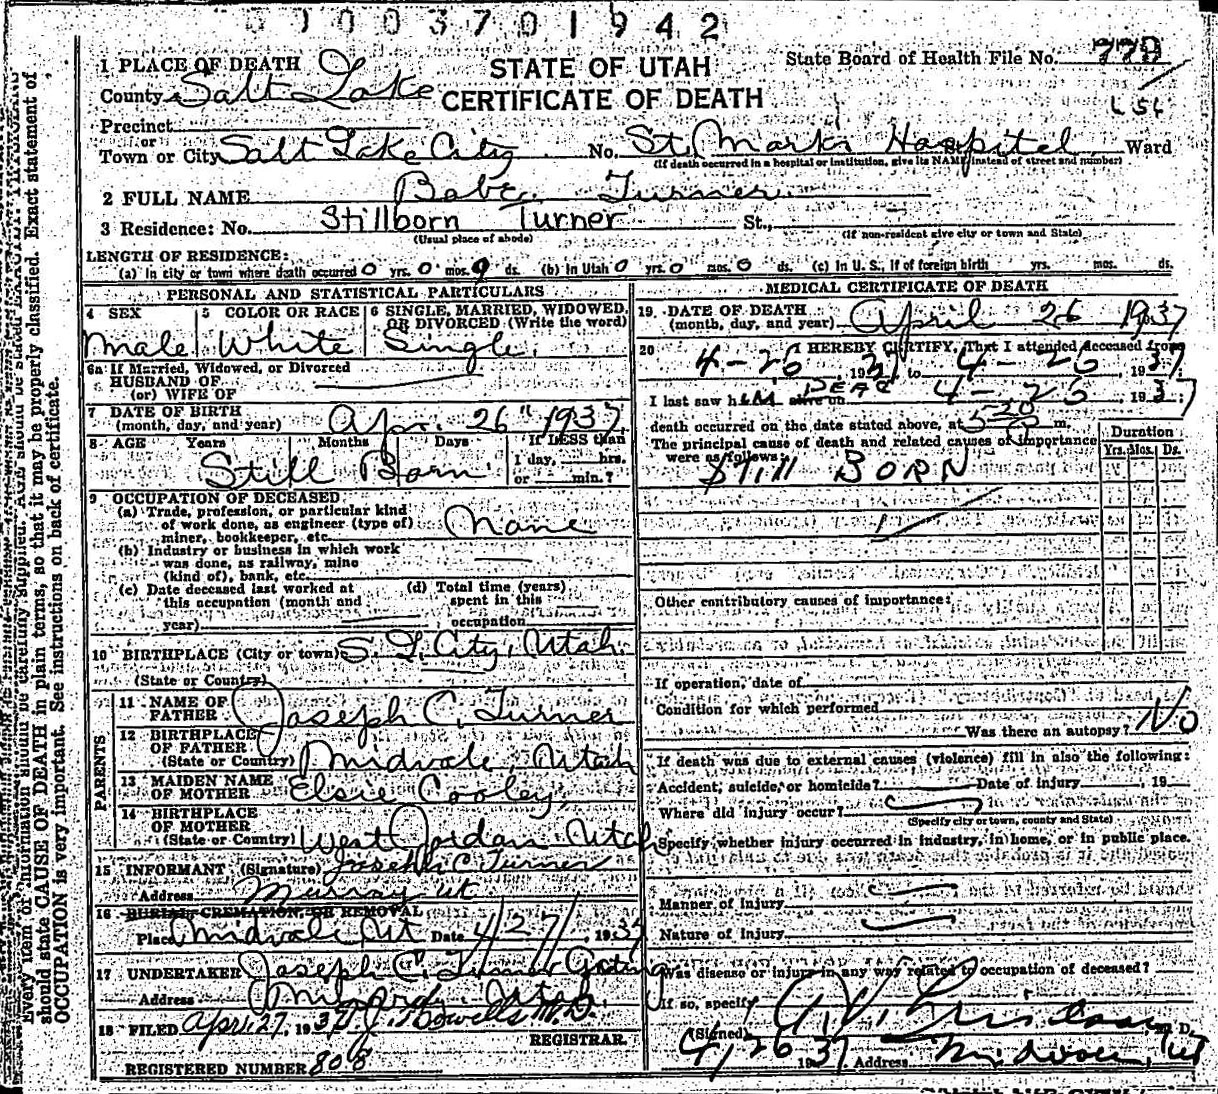 0 7 0 0 3 7 0 1 9 4 2
STATE OF UTAH
CERTIFICATE OF DEATH
State Board of Health File No. 779
1 PLACE OF DEATH
County Salt Lake
Precinct
or
Town or City Salt Lake City No. St. Mark's Hospital Ward
(If death occurred in a hospital or institution, give its NAME instead of street and number)
2 FULL NAME Babe Turner
3 Residence: No. Stillborn Turner St.,
(Usual place of abode) (If non-resident give city or town and State)
LENGTH OF RESIDENCE:
(a) In city or town where death occurred 0 yrs. 0 mos. 0 ds. (b) In Utah 0 yrs. 0 mos. 0 ds. (c) In U. S., if of foreign birth yrs. mos. ds.
PERSONAL AND STATISTICAL PARTICULARS
4 SEX 5 COLOR OR RACE 6 SINGLE, MARRIED, WIDOWED, OR DIVORCED (Write the word)
Male White Single
6a If Married, Widowed, or Divorced
HUSBAND OF
(or) WIFE OF
7 DATE OF BIRTH
(month, day, and year) Apr. 26" 1937
8 AGE Years Months Days If LESS than
1 day, hrs.
or min.?
Still Born
9 OCCUPATION OF DECEASED
(a) Trade, profession, or particular kind
of work done, as engineer (type of)
miner, bookkeeper, etc. None
(b) Industry or business in which work
was done, as railway, mine
(kind of), bank, etc.
(c) Date deceased last worked at
this occupation (month and
year)
(d) Total time (years)
spent in this
occupation
10 BIRTHPLACE (City or town) S. L. City, Utah.
(State or Country)
PARENTS
11 NAME OF
FATHER Joseph C. Turner
12 BIRTHPLACE
OF FATHER
(State or Country) Midvale, Utah
13 MAIDEN NAME
OF MOTHER Elsie Cooley,
14 BIRTHPLACE
OF MOTHER
(State or Country) West Jordan Utah
15 INFORMANT (Signature) Joseph C. Turner
Address Murray Ut
16 BURIAL, CREMATION, OR REMOVAL
Place Midvale Ut Date 4/27/ 1937
17 UNDERTAKER Joseph C. Turner Acting
Address Utah.
18 FILED April 27, 1937 J. Howells M.D.
REGISTRAR.
REGISTERED NUMBER 808
MEDICAL CERTIFICATE OF DEATH
19 DATE OF DEATH
(month, day, and year) April 26 1937
20 I HEREBY CERTIFY, That I attended deceased from
4-26 1937, to 4-26 1937;
I last saw him alive on DEAD 4-26, 1937
death occurred on the date stated above, at 530 m.
The principal cause of death and related causes of importance
were as follows: Still BORN
Duration
Yrs. Mos. Ds.
Other contributory causes of importance:
If operation, date of
Condition for which performed
Was there an autopsy? No
If death was due to external causes (violence) fill in also the following:
Accident, suicide, or homicide? Date of injury , 19
Where did injury occur?
(Specify city or town, county and State)
Specify whether injury occurred in industry, in home, or in public place.
Manner of injury
Nature of injury
Was disease or injury in any way related to occupation of deceased?
If so, specify
(Signed) M. D.
4, 26 1937 Address Ut
Every item of information should be carefully supplied. AGE should be stated EXACTLY. Exact statement of
should state CAUSE OF DEATH in plain terms, so that it may be properly classified.
OCCUPATION is very important. See instructions on back of certificate.